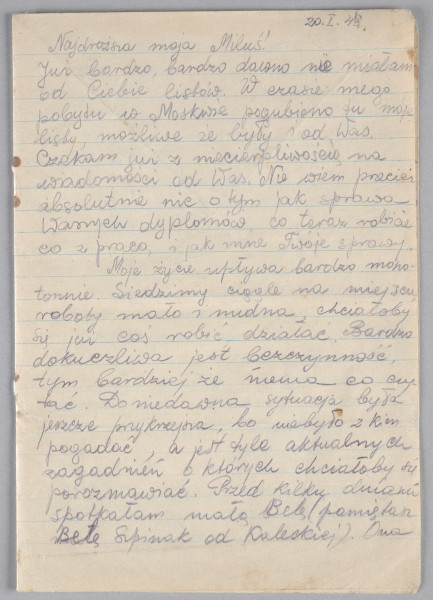 20. I. 45.
Najdroższa moja Miluś!
Już bardzo, bardzo dawno nie miałam
od Ciebie listów. W czasie mego
pobytu w Moskwie pogubiono tu moje
listy, możliwe że były i od Was.
Czekam już z niecierpliwością na
wiadomości od Was. Nie wiem przecież
absolutnie nic o tym jak sprawa
Waszych dyplomów, co teraz robisz
co z pracą, i jak inne Twoje sprawy.
Moje życie upływa bardzo mono-
tonnie. Siedzimy ciągle na miejscu
roboty mało i nudna, chciałoby
się już coś robić działać. Bardzo
dokuczliwa jest bezczynność,
tym bardziej że niema co czy-
tać. Do niedawna sytuacja była
jeszcze przykrzejsza, bo niebyło z kim
pogadać, a jest tyle aktualnych
zagadnień o których chciałoby się
porozmawiać. Przed kilku dniami
spotkałam małą Belę (pamiętasz
Belę Szpinak od Kaleckiej). Ona